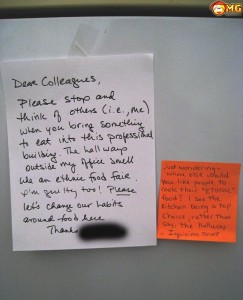 MG
Dear Colleagues,
Please stop and
think of others (i.e., me)
when you bring something
to eat into this professional
building. The hallways
outside my office smell
like an ethnic food fair.
I'm guilty too! Please
let's change our habits
around food here
Thanks
Just wondering -
where else would
you like people to
cook their "ethnic"
food? I see the
kitchen being a top
choice, rather than
say, the hallway
- Inquiring